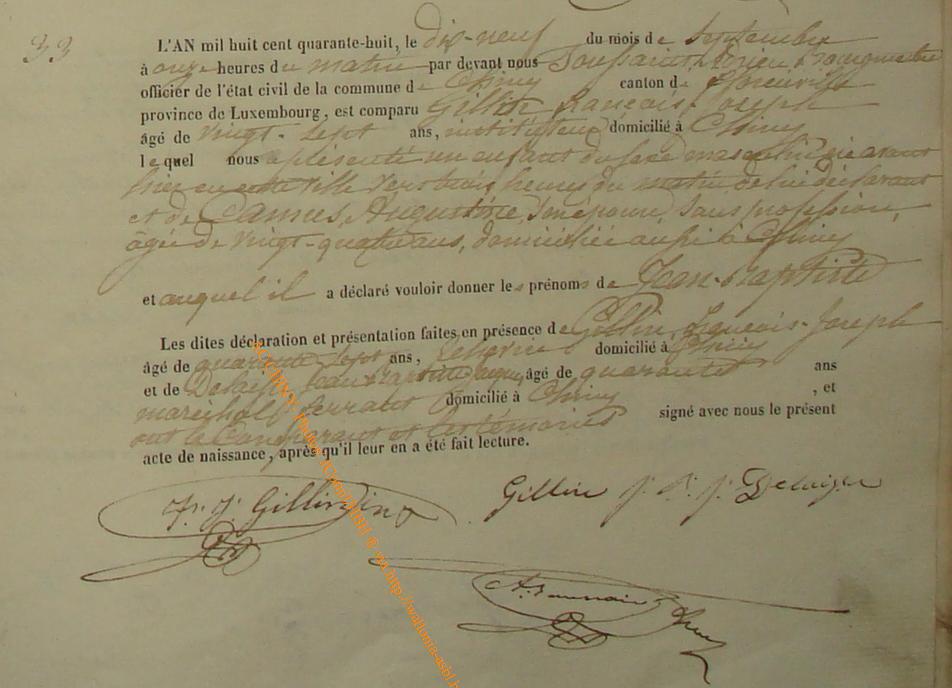 33
L'AN mil huit cent quarante-huit, le dix-neuf du mois de septembre
à onze heures du matin par devant nous
officier de l'état civil de la commune de Chiny canton de Florenville
province de Luxembourg, est comparu Gillin François-Joseph
âgé de vingt-sept ans, instituteur domicilié à Chiny
lequel nous a présenté un enfant du sexe masculin né avant
hier en cette ville vers trois heures du matin de lui déclarant
et de Camus, Augustine, son épouse, sans profession,
âgée de vingt-quatre ans, domiciliée aussi à Chiny
et auquel il a déclaré vouloir donner les prénoms de Jean-Baptiste
Les dites déclaration et présentation faites en présence de Gillin, François-Joseph
âgé de quarante sept ans, domicilié à Chiny
et de Jean Baptiste âgé de quarante ans
maréchal ferrant domicilié à Chiny, et
ont le Comparant et les témoins signé avec nous le présent
acte de naissance, après qu'il leur en a été fait lecture.
Fr. J. Gillin Gillin J. B. J.